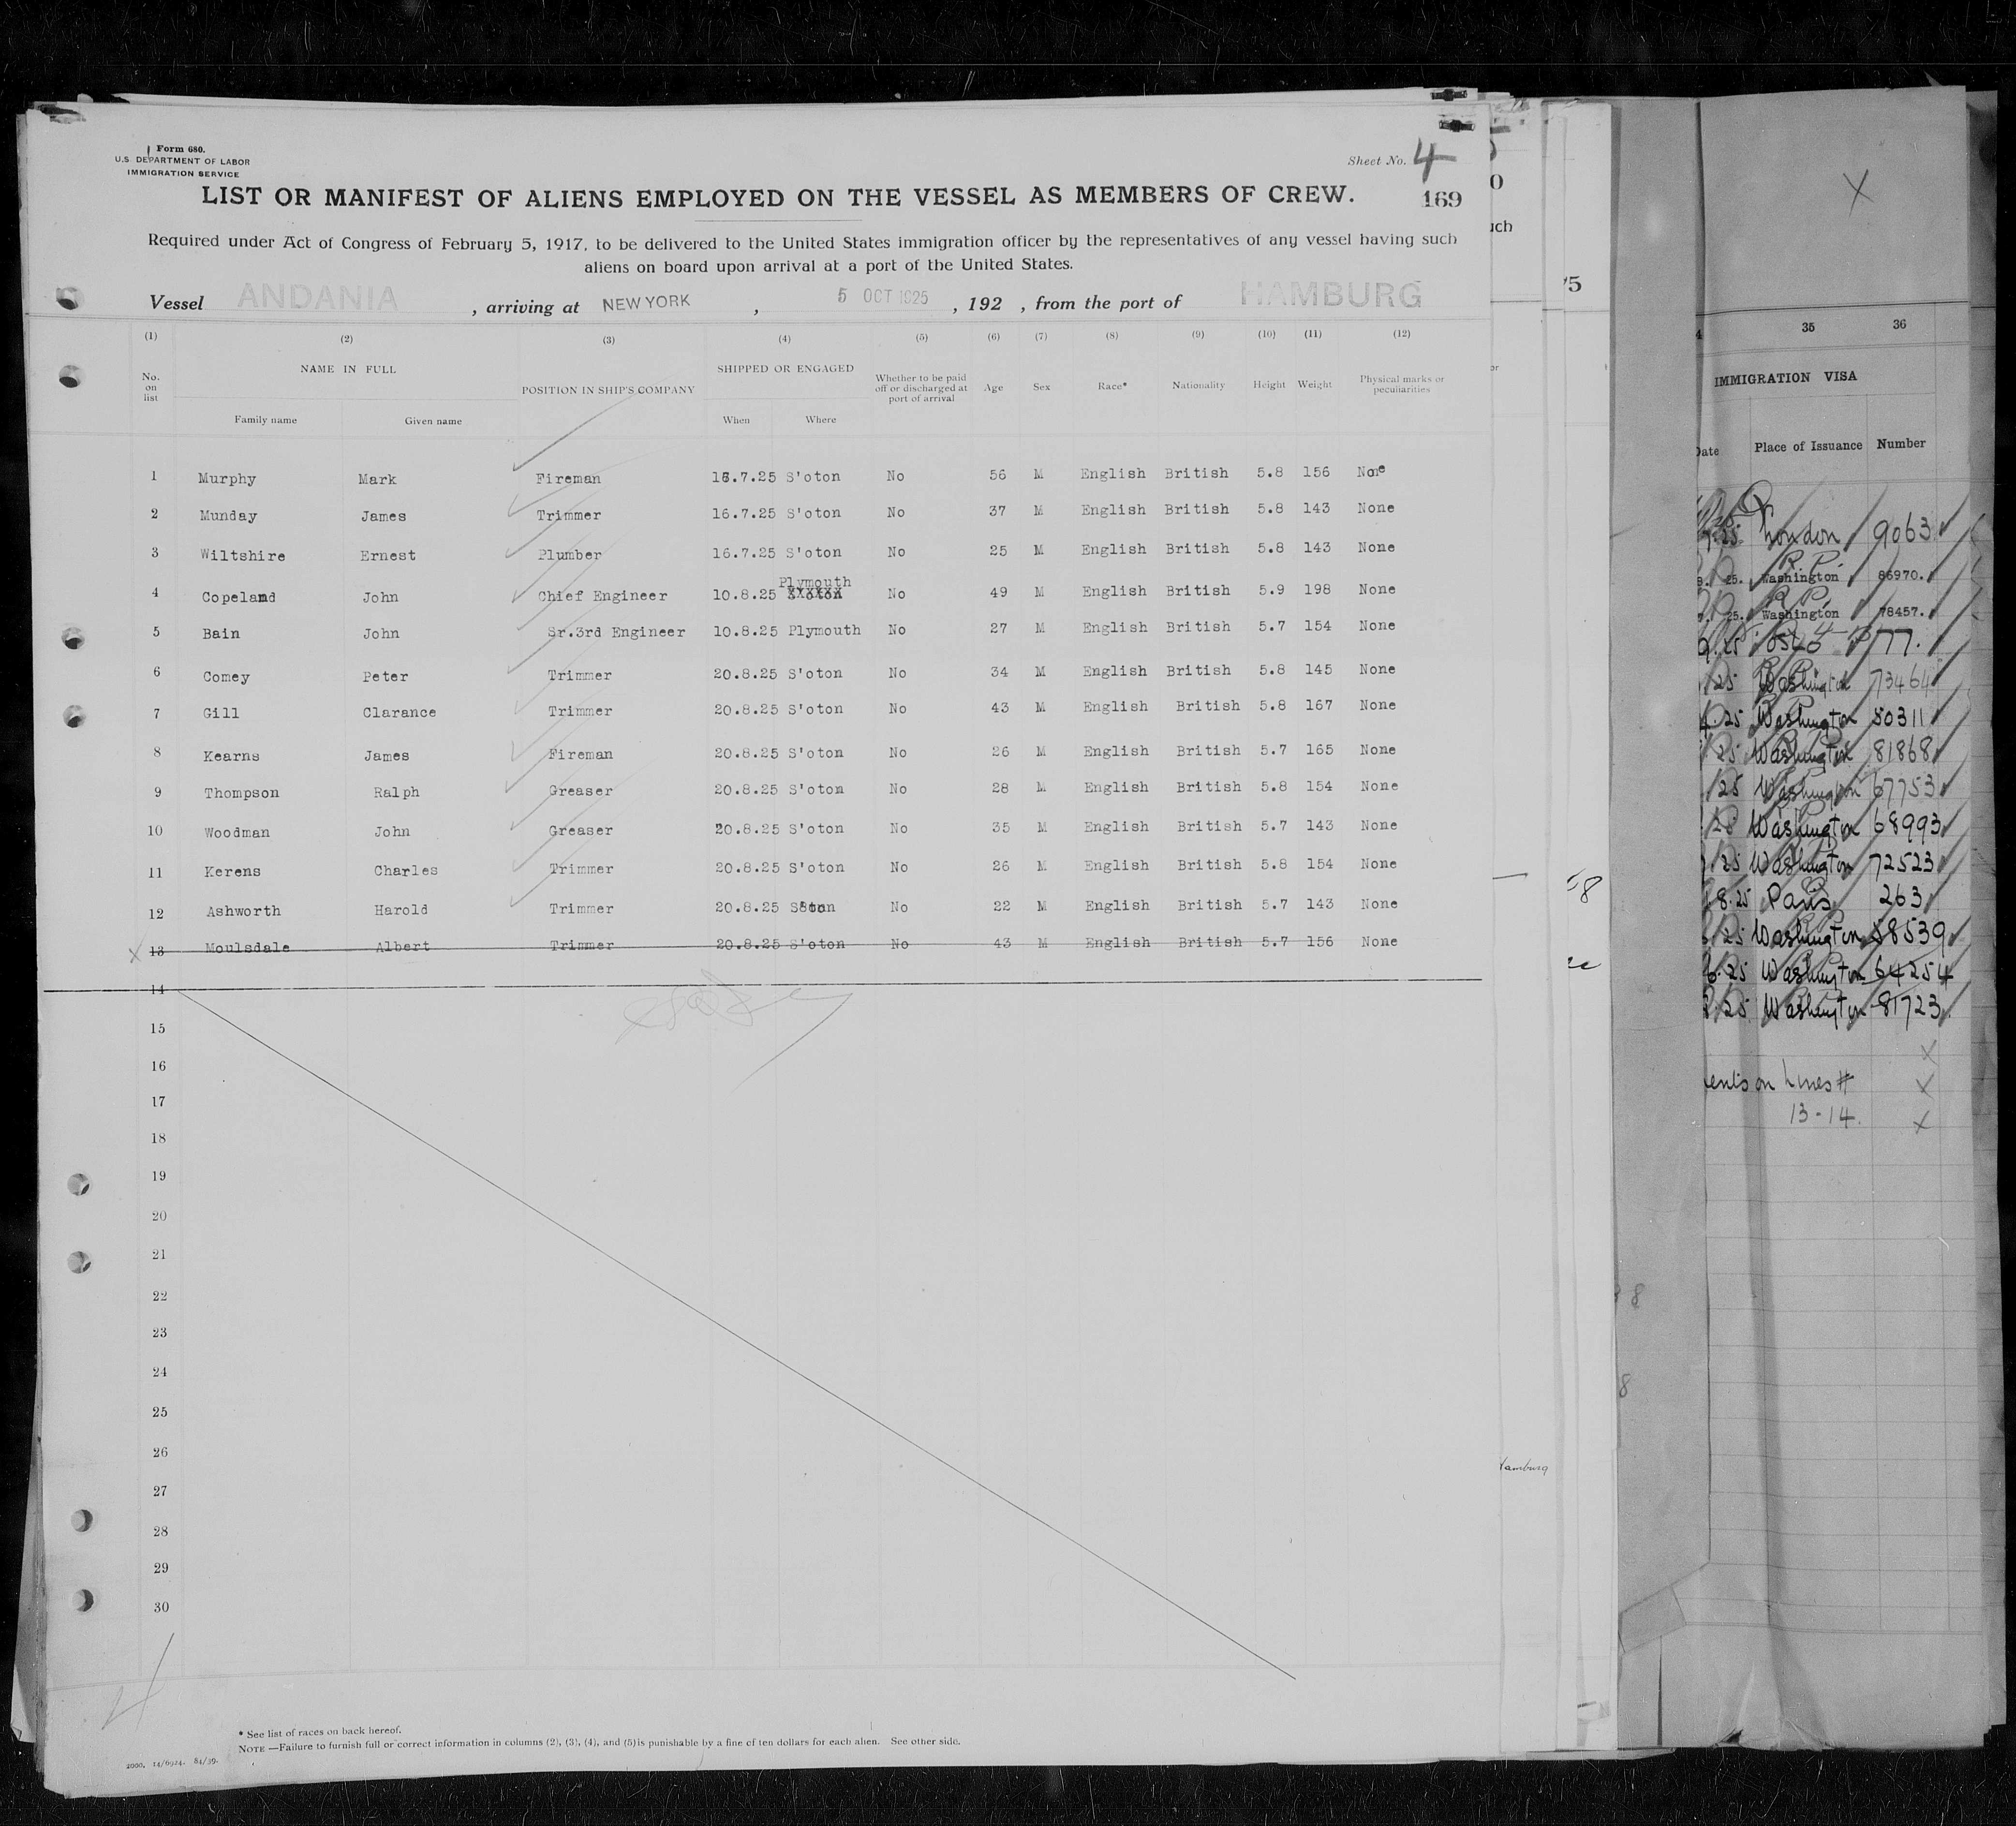 Form 680.
U.S. DEPARTMENT OF LABOR
IMMIGRATION SERVICE
Sheet No. 4
LIST OR MANIFEST OF ALIENS EMPLOYED ON THE VESSEL AS MEMBERS OF CREW.
169
Required under Act of Congress of February 5, 1917, to be delivered to the United States immigration officer by the representatives of any vessel having such
aliens on board upon arrival at a port of the United States.
Vessel ANDANIA, arriving at NEW YORK, 5 OCT 1925, 192 , from the port of HAMBURG
(1) (2) (3) (4) (5) (6) (7) (8) (9) (10) (11) (12)
No. on list NAME IN FULL POSITION IN SHIP'S COMPANY SHIPPED OR ENGAGED Whether to be paid off or discharged at port of arrival Age Sex Race* Nationality Height Weight Physical marks or peculiarities
Family name Given name When Where
1 Murphy Mark Fireman 16.7.25 S'oton No 56 M English British 5.8 156 None
2 Munday James Trimmer 16.7.25 S'oton No 37 M English British 5.8 143 None
3 Wiltshire Ernest Plumber 16.7.25 S'oton No 25 M English British 5.8 143 None
Plymouth
4 Copeland John Chief Engineer 10.8.25 S'oton No 49 M English British 5.9 198 None
5 Bain John Sr.3rd Engineer 10.8.25 Plymouth No 27 M English British 5.7 154 None
6 Comey Peter Trimmer 20.8.25 S'oton No 34 M English British 5.8 145 None
7 Gill Clarance Trimmer 20.8.25 S'oton No 43 M English British 5.8 167 None
8 Kearns James Fireman 20.8.25 S'oton No 26 M English British 5.7 165 None
9 Thompson Ralph Greaser 20.8.25 S'oton No 28 M English British 5.8 154 None
10 Woodman John Greaser 20.8.25 S'oton No 35 M English British 5.7 143 None
11 Kerens Charles Trimmer 20.8.25 S'oton No 26 M English British 5.8 154 None
12 Ashworth Harold Trimmer 20.8.25 No 22 M English British 5.7 143 None
x 13 Moulsdale Albert Trimmer 20.8.25 S'oton No 43 M English British 5.7 156 None
14
15
16
17
18
19
20
21
22
23
24
25
26
27
28
29
30
* See list of races on back hereof.
NOTE —Failure to furnish full or correct information in columns (2), (3), (4), and (5) is punishable by a fine of ten dollars for each alien. See other side.
2000. 14/6924. 84/39.
Hamburg
75
35 36
IMMIGRATION VISA
Date Place of Issuance Number
London 9063
25. Washington 86970.
25. Washington 78457.
25 Oslo 77.
25 Washington 73464
25 Washington 80311
25 Washington 81868
25 Washington 67753
25 Washington 68993
25 Washington 72523
8.25 Paris 263
25 Washington 58539
6.25 Washington 64254
25 Washington 81723
on Lines #
13-14.